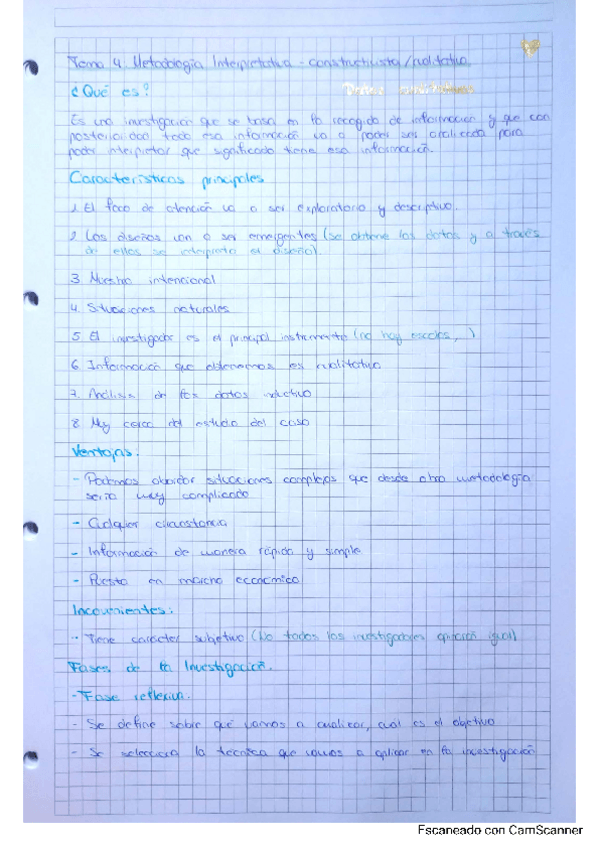 Tema 4. Metodología Interpretativa - constructivista / cualitativa
¿Qué es?
Es una investigación que se basa en la recogida de información y que con
posterioridad toda esa información va a poder ser analizada para
poder interpretar que significado tiene esa información.
Características principales
1. El foco de atención va a ser exploratorio y descriptivo.
2. Los diseños van a ser emergentes (se obtiene los datos y a través
de ellos se interpreta el diseño).
3. Muestra intencional
4. Situaciones naturales
5. El investigador es el principal instrumento (no hay escalas, )
6. Información que obtenemos es cualitativa
7. Análisis de los datos inductivo
8. Muy cerca del estudio del caso
Ventajas:
- Podemos abordar situaciones complejas que desde otra metodología
sería muy complicado
- Cualquier circunstancia
- Información de manera rápida y simple
- Puesta en marcha económica
Inconvenientes:
- Tiene carácter subjetivo (No todos los investigadores opinarán igual)
Fases de la Investigación.
- Fase reflexiva.
- Se define sobre qué vamos a analizar, cuál es el objetivo
- Se selecciona la técnica que vamos a aplicar en la investigación
Escaneado con CamScanner